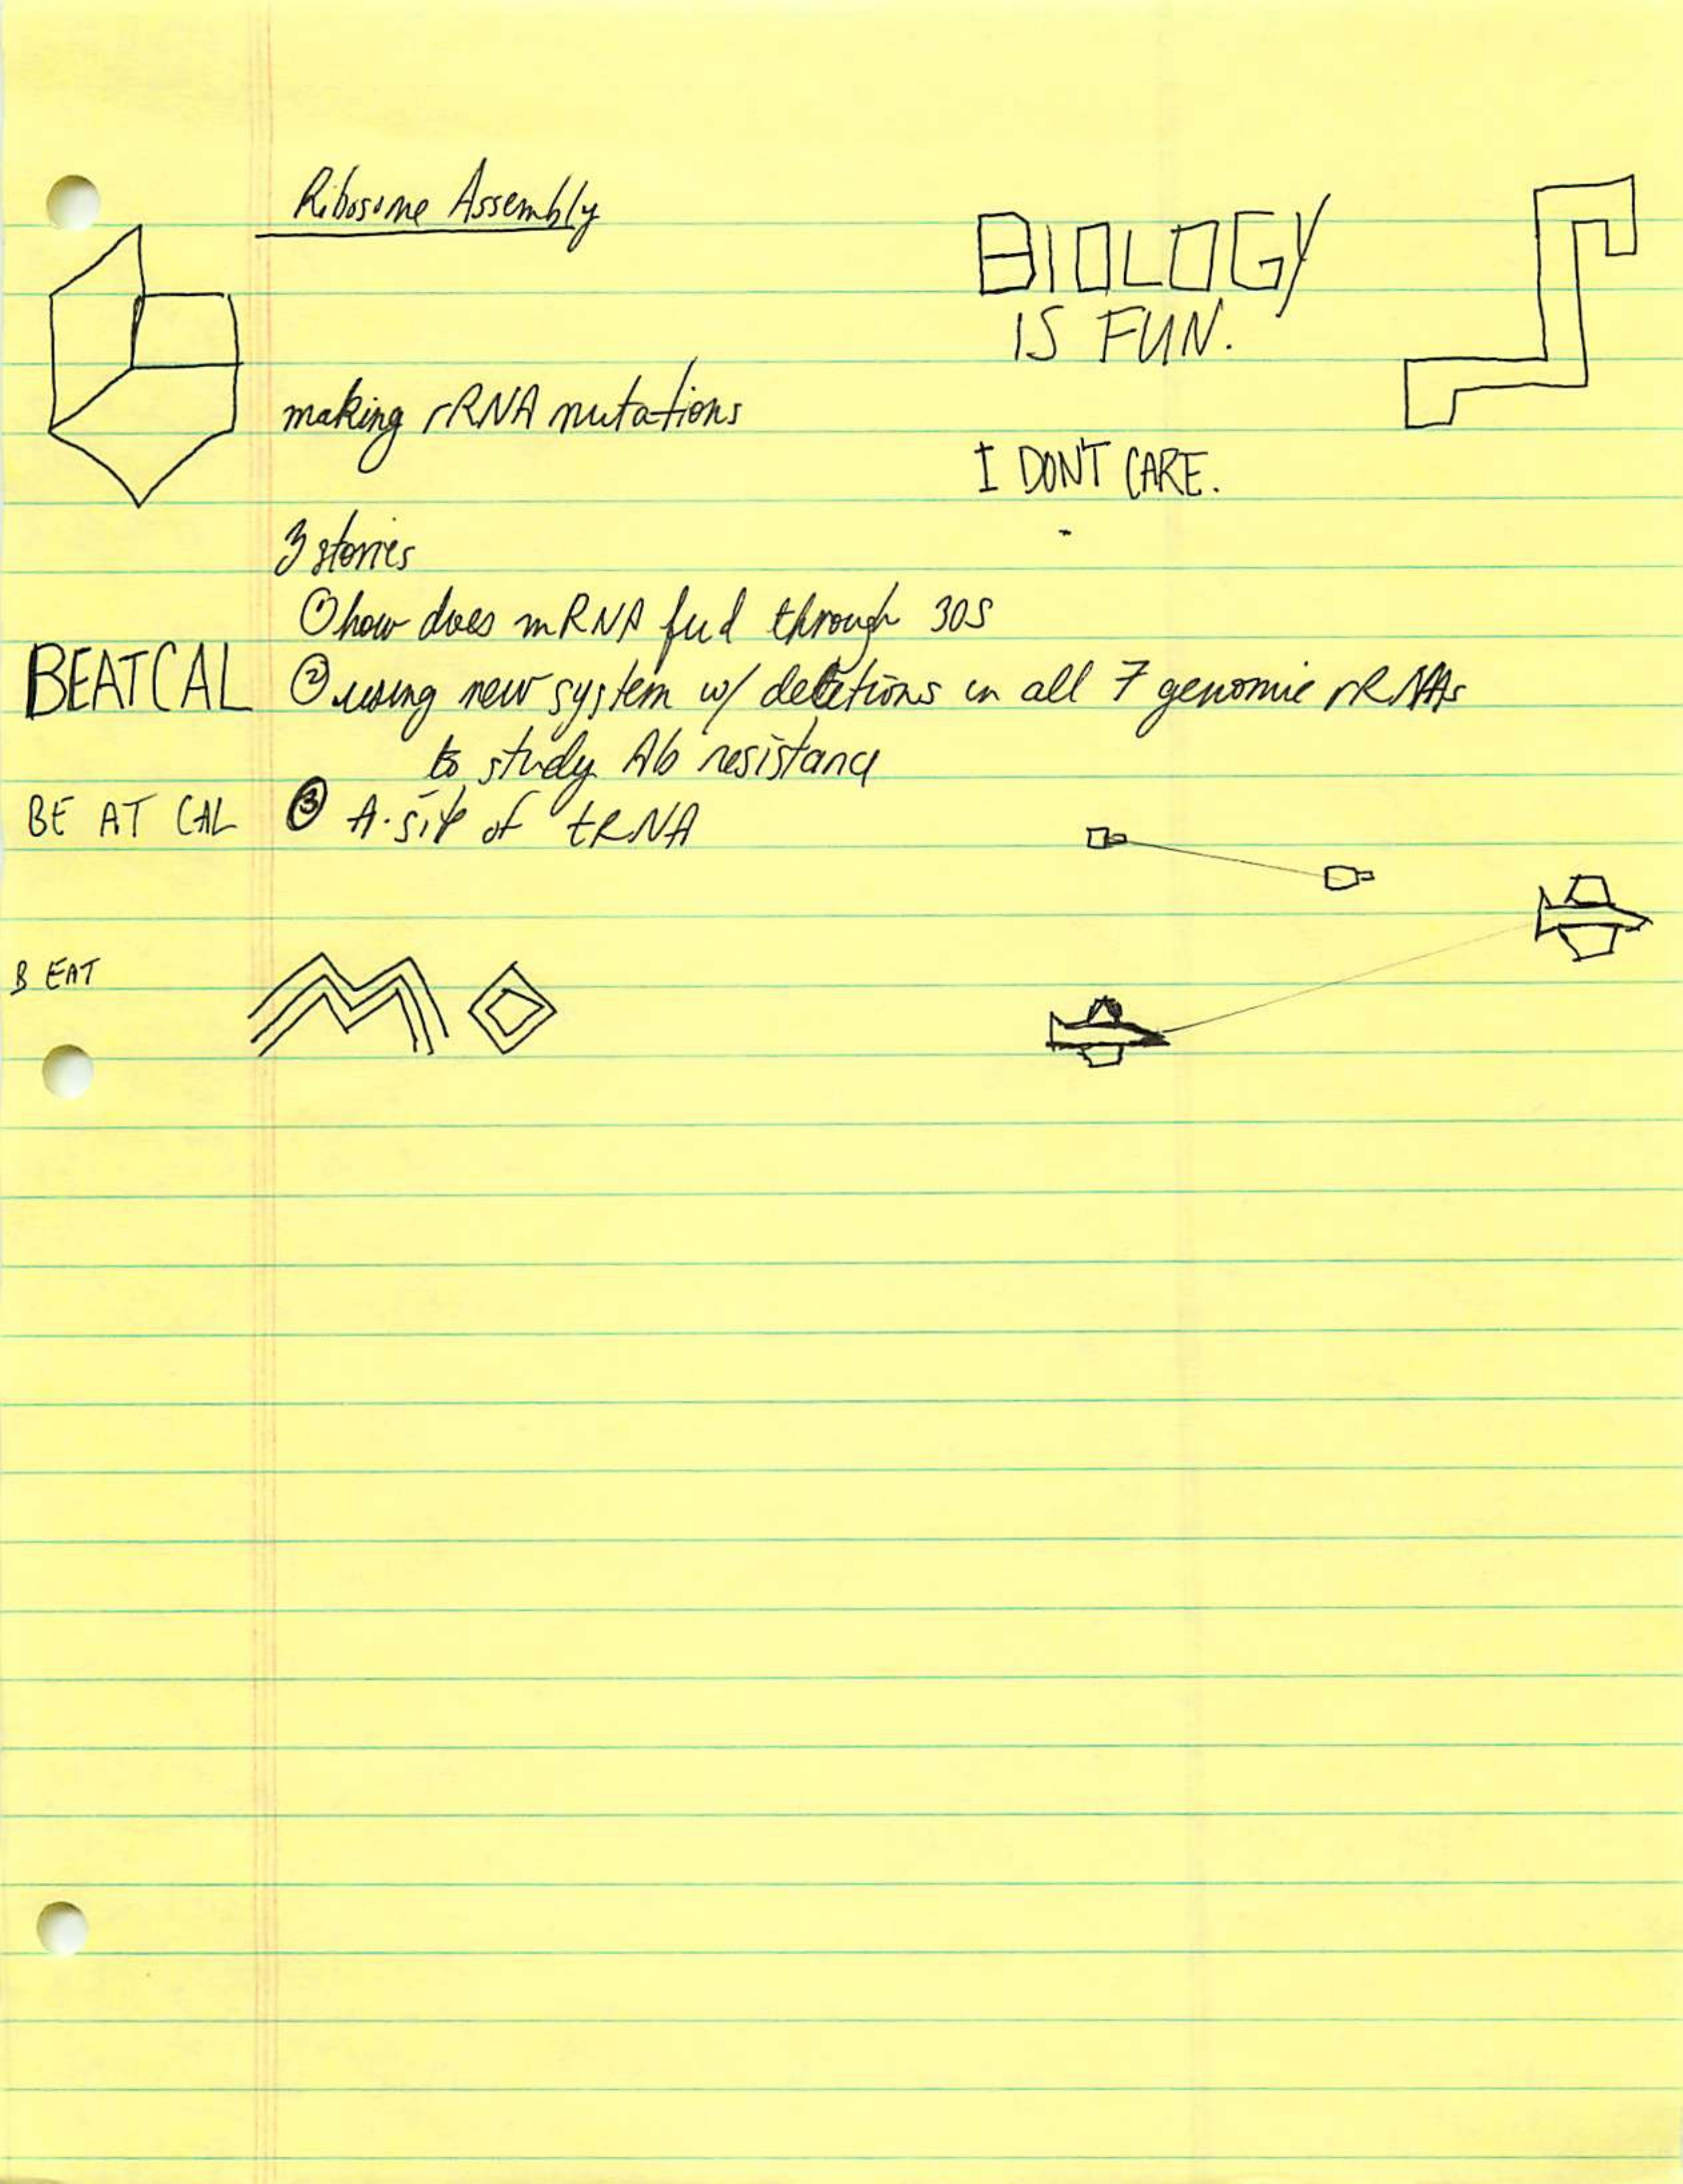 Ribosome Assembly
BIOLOGY
IS FUN.
making rRNA mutations
I DON'T CARE.
3 stories
① how does mRNA feed through 30S
BEATCAL
② using new system w/ deletions in all 7 genomic rRNAs
to study Ab resistance
BE AT CAL
③ A-site of tRNA
B EAT